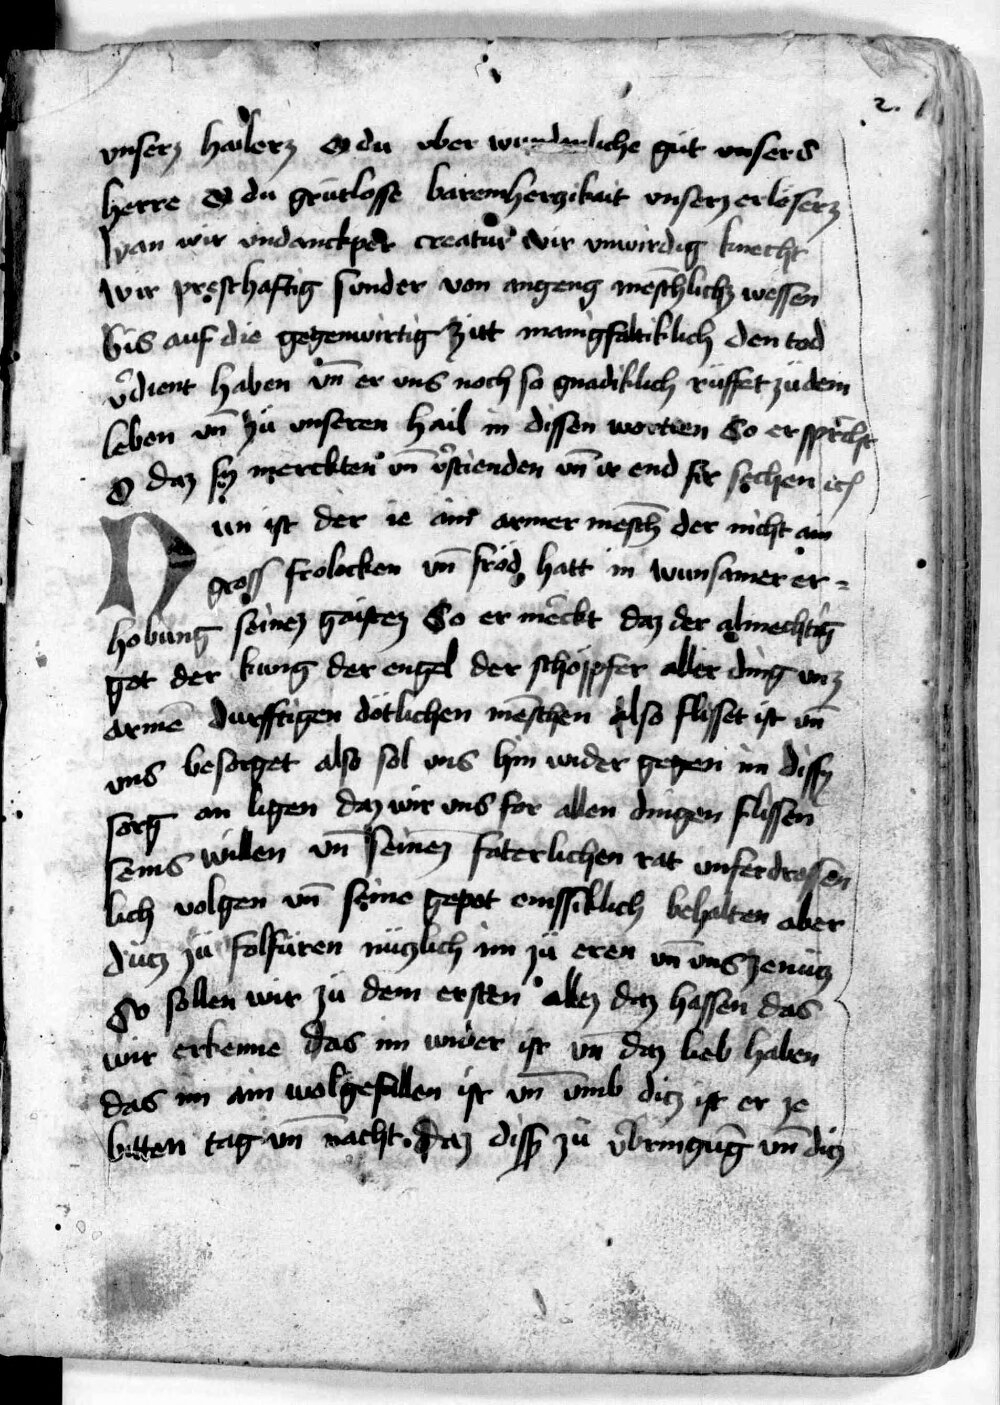 2.
unserz hailerz O du uber wunderliche güt unsers
herre O du grütlosse baremherzikait unserz erlöserz
Wan wir undanckper creatur wir unwirdig knecht
wir presthaftig sunder von angeng meschlichz wessen
bis auf die gegenwirtig zitt manigfaltiklich den tod
v̄dient haben vn̄ er uns noch so gnadiklich rüffet zü dem
leben vn̄ zü unseren hail in dissen wortten So er spricht
O daz sy merckten vn̄ v̄stienden vn̄ ir end für sechen
Nun ist der ie ain armer mesch der nicht ain
gross frolocken vn̄ fröd hatt in wunsamer er=
hobung seinez gaistez So er merckt daz der almechtig
got der kung der engel der schöpffer aller ding unz
armē durfftigen dötlichen mēschen also flisset ist vn̄
uns besorget also sol uns hin wider gegen im dissy
sorg an ligen daz wir uns for allen dingen flissen
seins willen vn̄ seinez faterlichen rat unferdrossen
lich volgen vn̄ seine gepot emssiklich behalten aber
ditz zü folfüren nützlich im zü eren vn̄ uns ze nutz
So sollen wir zü dem ersten allez daz hassen das
wir erkenne das im wider ist vn̄ daz lieb haben
das im ain wolgefallen ist vn̄ umb ditz ist er ze
bitten tag vn̄ nacht. Daz diss zü v̄bringug vn̄ ditz